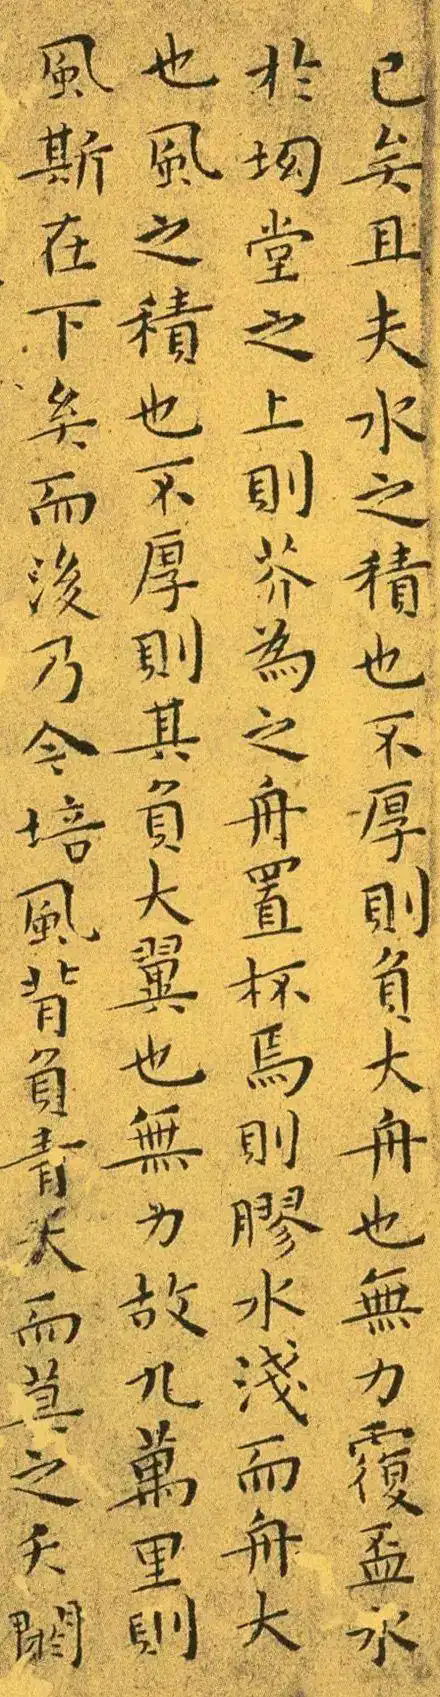 已矣且夫水之積也不厚則負大舟也無力覆盃水
於坳堂之上則芥為之舟置杯焉則膠水淺而舟大
也風之積也不厚則其負大翼也無力故九萬里則
風斯在下矣而後乃今培風背負青天而莫之夭閼